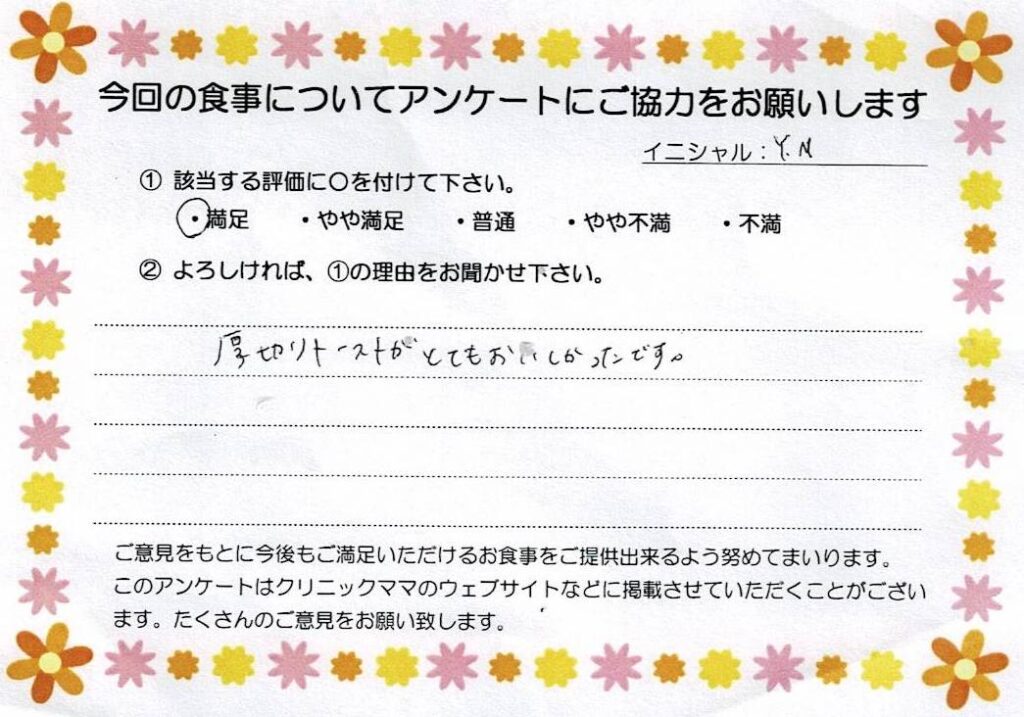 今回の食事についてアンケートにご協力をお願いします
イニシャル：Y.N
① 該当する評価に〇を付けて下さい。
・満足 ・やや満足 ・普通 ・やや不満 ・不満
② よろしければ、①の理由をお聞かせ下さい。
厚切りトーストがとてもおいしかったです。
ご意見をもとに今後もご満足いただけるお食事をご提供出来るよう努めてまいります。
このアンケートはクリニックママのウェブサイトなどに掲載させていただくことがござい
ます。たくさんのご意見をお願い致します。